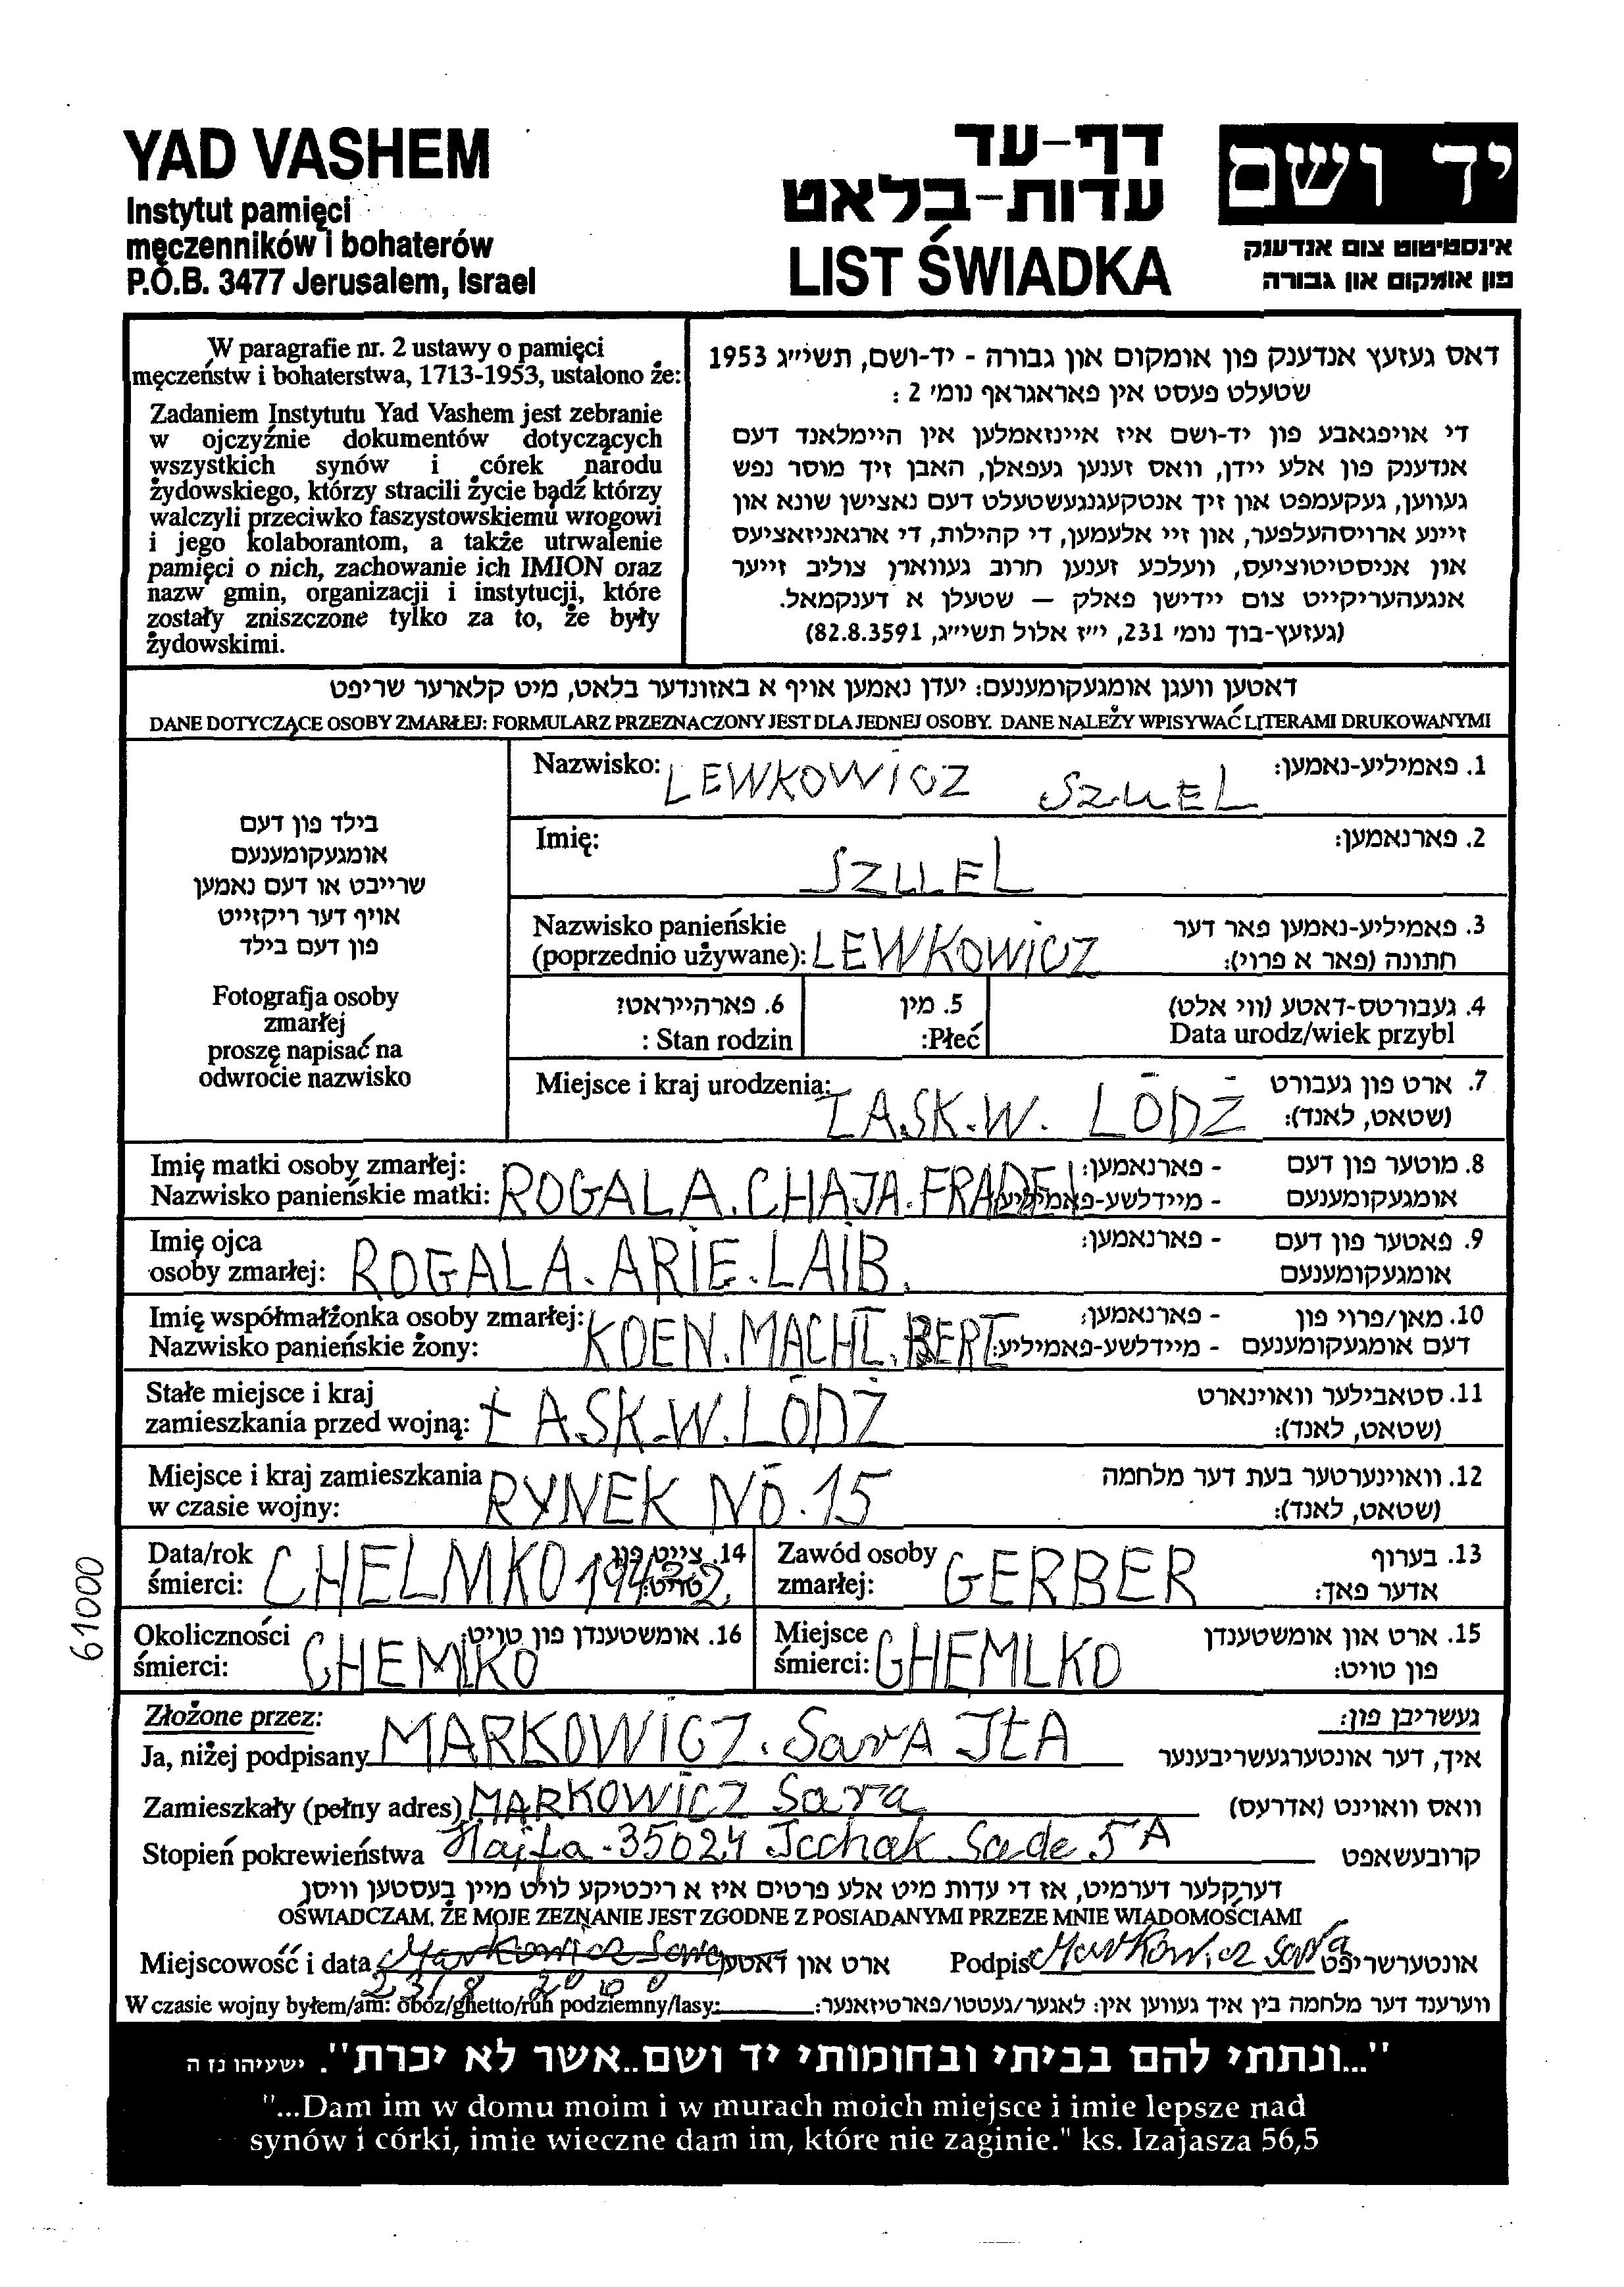 YAD VASHEM
Instytut pamięci
męczenników i bohaterów
P.O.B. 3477 Jerusalem, Israel
דף-עד
עדות-בלאט
LIST ŚWIADKA
יד ושם
אינסטיטוט צום אנדענק
פון אומקום און גבורה
W paragrafie nr. 2 ustawy o pamięci
męczeństw i bohaterstwa, 1713-1953, ustalono że:
Zadaniem Instytutu Yad Vashem jest zebranie
w ojczyźnie dokumentów dotyczących
wszystkich synów i córek narodu
żydowskiego, którzy stracili życie bądź którzy
walczyli przeciwko faszystowskiemu wrogowi
i jego kolaborantom, a także utrwalenie
pamięci o nich, zachowanie ich IMION oraz
nazw gmin, organizacji i instytucji, które
zostały zniszczone tylko za to, że były
żydowskimi.
דאס געזעץ אנדענק פון אומקום און גבורה - יד-ושם, תשי״ג 1953
שטעלט פעסט אין פאראגראף נומ׳ 2 :
די אויפגאבע פון יד-ושם איז איינזאמלען אין היימלאנד דעם
אנדענק פון אלע יידן, וואס זענען געפאלן, האבן זיך מוסר נפש
געווען, געקעמפט און זיך אנטקעגנגעשטעלט דעם נאצישן שונא און
זיינע ארויסהעלפער, און זיי אלעמען, די קהילות, די ארגאניזאציעס
און אינסטיטוציעס, וועלכע זענען חרוב געווארן צוליב זייער
אנגעהעריקייט צום יידישן פאלק – שטעלן א דענקמאל.
(געזעץ-בוך נומ׳ 231, י״ז אלול תשי״ג, 82.8.3591)
דאטען וועגן אומגעקומענעם: יעדן נאמען אויף א באזונדער בלאט, מיט קלארער שריפט
DANE DOTYCZĄCE OSOBY ZMARŁEJ: FORMULARZ PRZEZNACZONY JEST DLA JEDNEJ OSOBY. DANE NALEŻY WPISYWAĆ LITERAMI DRUKOWANYMI
בילד פון דעם
אומגעקומענעם
שרייבט או דעם נאמען
אויף דער ריקזייט
פון דעם בילד
Fotografja osoby
zmarłej
proszę napisać na
odwrocie nazwisko
Nazwisko: LEWKOWICZ SZUEL 1. פאמיליע-נאמען:
Imię: SZUEL 2. פארנאמען:
Nazwisko panieńskie 3. פאמיליע-נאמען פאר דער
(poprzednio używane): LEWKOWICZ חתונה (פאר א פרוי):
6. פארהייראט? 5. מין 4. געבורטס-דאטע (ווי אלט)
: Stan rodzin :Płeć Data urodz/wiek przybl
Miejsce i kraj urodzenia: ŁASK.W. LÓDŹ 7. ארט פון געבורט
(שטאט, לאנד):
Imię matki osoby zmarłej: - פארנאמען: 8. מוטער פון דעם
Nazwisko panieńskie matki: ROGALA.CHAJA.FRADEL - מיידלשע-פאמיליע: אומגעקומענעם
Imię ojca - פארנאמען: 9. פאטער פון דעם
osoby zmarłej: ROGALA.ARIE.LAIB. אומגעקומענעם
Imię współmałżonka osoby zmarłej: - פארנאמען: 10. מאן/פרוי פון
Nazwisko panieńskie żony: KOEN.MACHL.BERT - מיידלשע-פאמיליע: דעם אומגעקומענעם
Stałe miejsce i kraj 11. סטאבילער וואוינארט
zamieszkania przed wojną: ŁASK-W.LÓDŹ (שטאט, לאנד):
Miejsce i kraj zamieszkania 12. וואוינערטער בעת דער מלחמה
w czasie wojny: RYNEK NO.15 (שטאט, לאנד):
Data/rok 14. צייט פון Zawód osoby 13. בערוף
śmierci: CHELMKO 1942 טויט: zmarłej: GERBER אדער פאך:
Okoliczności 16. אומשטענדן פון טויט: Miejsce 15. ארט און אומשטענדן
śmierci: CHEMLKO śmierci: GHEMLKO פון טויט:
61000
Złożone przez: געשריבן פון:
Ja, niżej podpisany MARKOWICZ. Sara Jta איך, דער אונטערגעשריבענער
Zamieszkały (pełny adres) MARKOWICZ Sara וואס וואוינט (אדרעס)
Stopień pokrewieństwa Hajfa-35024 Jcchak Sade 5A קרובעשאפט
דערקלער דערמיט, אז די עדות מיט אלע פרטים איז א ריכטיקע לויט מיין בעסטען וויסן
OŚWIADCZAM, ŻE MOJE ZEZNANIE JEST ZGODNE Z POSIADANYMI PRZEZE MNIE WIADOMOŚCIAMI
Miejscowość i data Markowicz Sara ארט און דאטע Podpis Markowicz Sara אונטערשריפט
23/8 2000
W czasie wojny byłem/am: obóz/ghetto/ruh podziemny/lasy: ווערענד דער מלחמה בין איך געווען אין: לאגער/געטטו/פארטיזאנער:
"...ונתתי להם בביתי ובחומותי יד ושם..אשר לא יכרת". ישעיהו נז ה
"...Dam im w domu moim i w murach moich miejsce i imie lepsze nad
synów i córki, imie wieczne dam im, które nie zaginie." ks. Izajasza 56,5